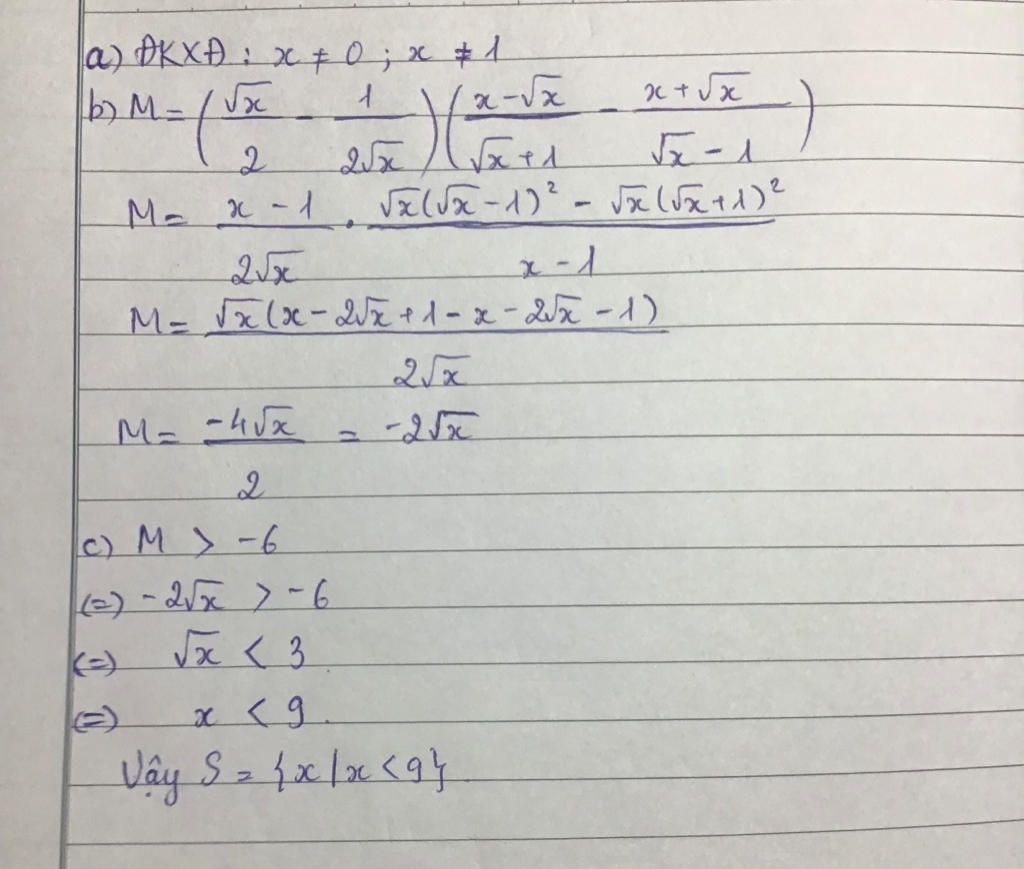 a) ĐKXĐ : x ≠ 0 ; x ≠ 1
b) M = (√x/2 - 1/2√x)(x-√x/√x+1 - x+√x/√x-1)
M = x-1/2√x . √x(√x-1)² - √x(√x+1)²/x-1
M = √x(x-2√x+1-x-2√x-1)/2√x
M = -4√x/2 = -2√x
c) M > -6
(=) -2√x > -6
(=) √x < 3
(=) x < 9
Vậy S = {x/x<9}